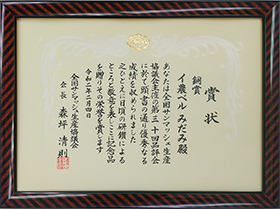 賞状
銅賞
イ農ベル みだみ殿
あなたは全国サンマッシュ生産
協議会主催の第三十四回品評会
に於て頭書の通り優秀なる
成績を収められました
これひとえに日頃の研鑽による
ところと敬意を表しここに記念品
を贈りその栄誉を賞します
令和二年二月四日
全国サンマッシュ生産協議会
会長 森坪 清則